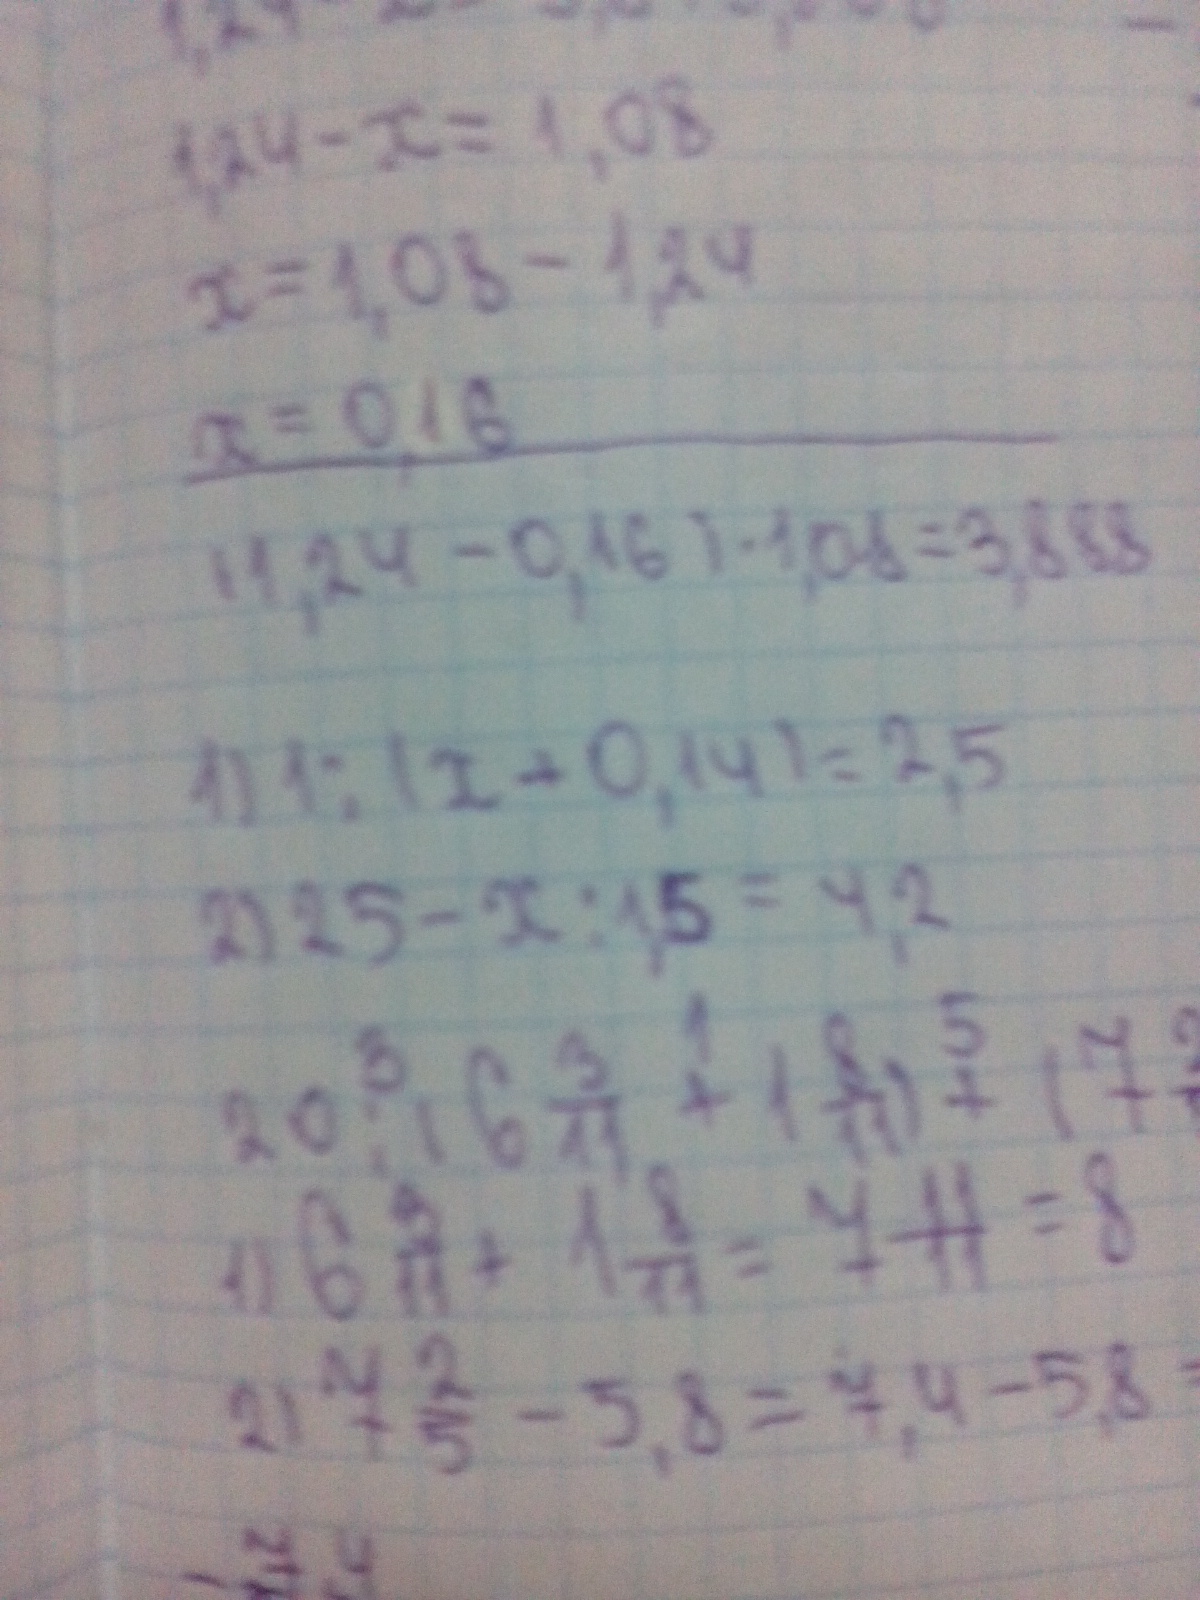 1,24 - x = 1,08
x = 1,08 - 1,24
x = 0,16
(1,24 - 0,16) · 1,08 = 3,888
1) 1 : (x + 0,14) = 2,5
2) 25 - x : 1,5 = 4,2
3 1 5
20 : (6 3/11 + 1 8/11) + (7 2
1) 6 3/11 + 1 8/11 = 7 11/11 = 8
2) 7 2/5 - 5,8 = 7,4 - 5,8 =